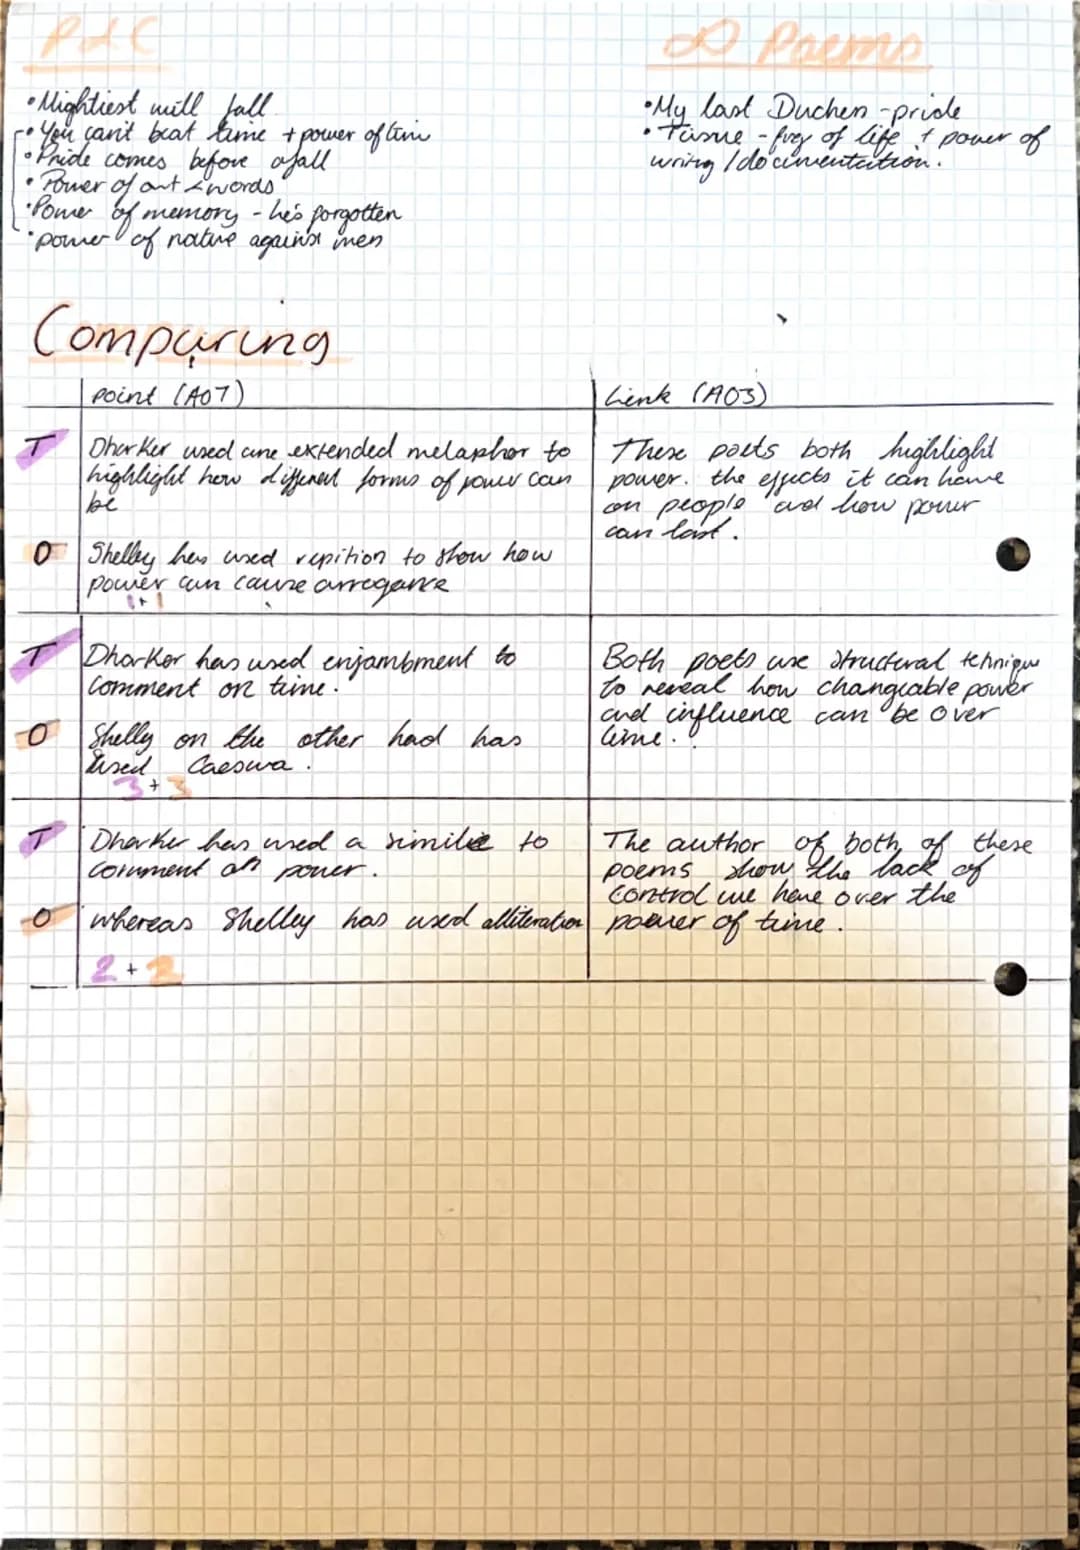 P & C
∞ Poems
•Mightiest will fall
•You can't beat time + power of time
•Pride comes before a fall
•Power of art & words
•Power of memory - he's forgotten
•power of nature against men
•My last Duchess - pride
•Tissue - of life + power of
writing / documentation.
Comparing
point (AO1)
Link (AO3)
T
Dharker used an extended metaphor to
highlight how different forms of power can
be
O
Shelley has used repition to show how
power can cause arrogance
1+1
These poets both highlight
power. the effects it can have
on people and how power
can last.
T
Dharker has used enjambment to
comment on time.
O
Shelly on the other had has
used
3+3
Both poets use structural technique
to reveal how changeable power
and influence can be over
time.
T
Dharker has used a similie to
comment on power.
O
whereas Shelley has used alliteration
2+2
The author of both of these
poems show the lack of
control we have over the
power of time.